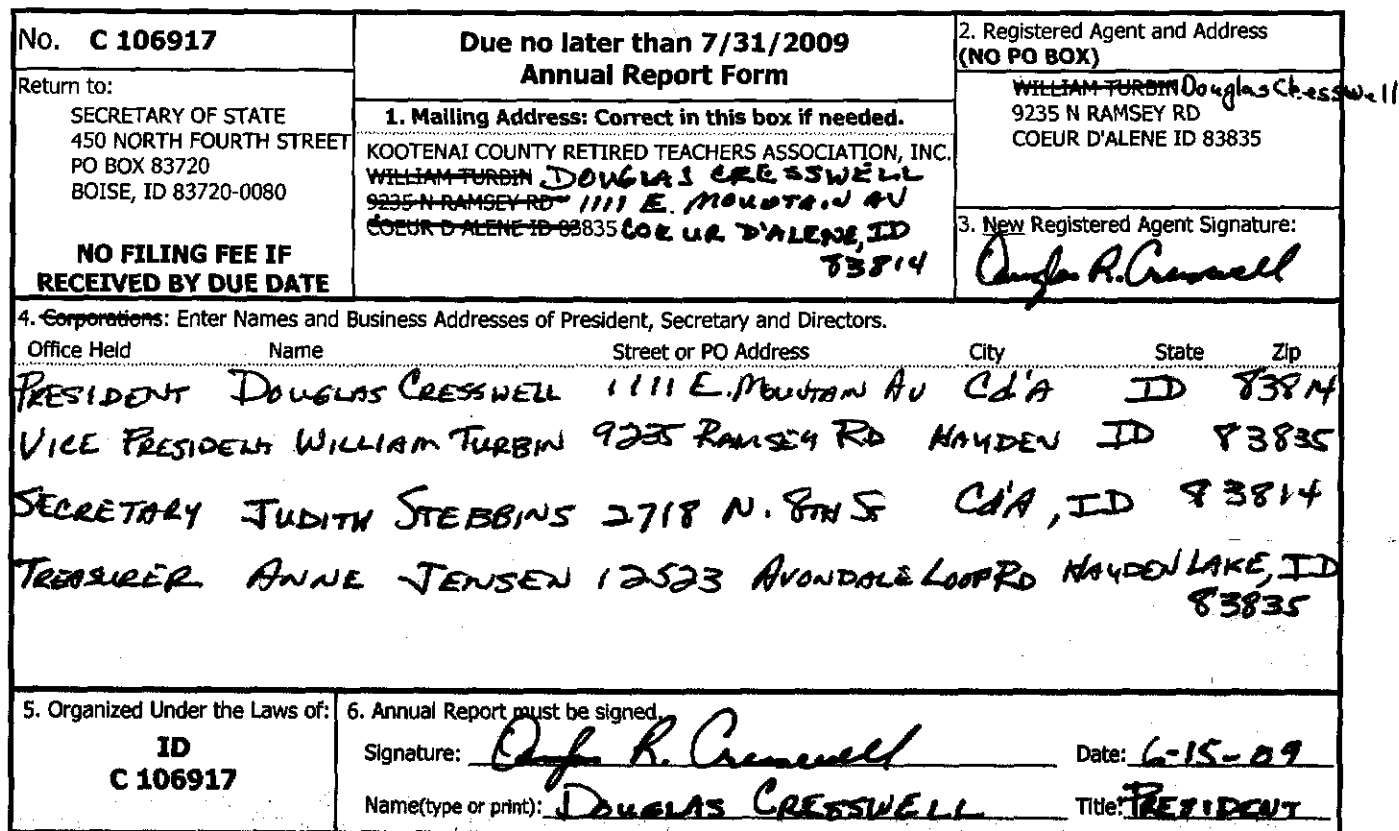 No. C 106917
Return to:
SECRETARY OF STATE
450 NORTH FOURTH STREET
PO BOX 83720
BOISE, ID 83720-0080
NO FILING FEE IF
RECEIVED BY DUE DATE
Due no later than 7/31/2009
Annual Report Form
1. Mailing Address: Correct in this box if needed.
KOOTENAI COUNTY RETIRED TEACHERS ASSOCIATION, INC.
WILLIAM TURBIN DOUGLAS CRESSWELL
9235 N RAMSEY RD 1111 E. MOUNTAIN AV
COEUR D ALENE ID 83835 COEUR D'ALENE, ID
83814
2. Registered Agent and Address
(NO PO BOX)
WILLIAM TURBIN Douglas Cresswell
9235 N RAMSEY RD
COEUR D'ALENE ID 83835
3. New Registered Agent Signature:
Douglas R. Cresswell
4. Corporations: Enter Names and Business Addresses of President, Secretary and Directors.
Office Held Name Street or PO Address City State Zip
PRESIDENT DOUGLAS CRESSWELL 1111 E. MOUNTAIN AV Cd'A ID 83814
VICE PRESIDENT WILLIAM TURBIN 9235 RAMSEY RD HAYDEN ID 83835
SECRETARY JUDITH STEBBINS 2718 N. 8TH ST Cd'A, ID 83814
TREASURER ANNE JENSEN 12523 AVONDALE LOOP RD HAYDEN LAKE, ID
83835
5. Organized Under the Laws of:
ID
C 106917
6. Annual Report must be signed.
Signature: Douglas R. Cresswell Date: 6-15-09
Name(type or print): DOUGLAS CRESSWELL Title: PRESIDENT